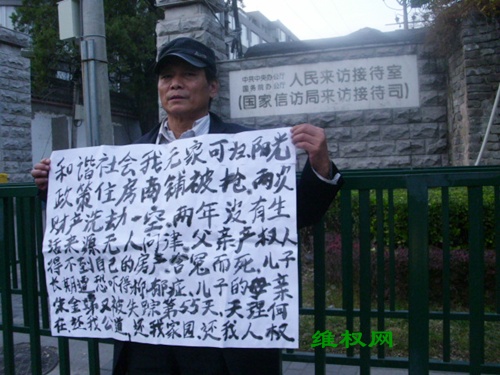 中共中央办公厅
国务院办公厅
人民来访接待室
(国家信访局来访接待司)
和谐社会我无家可归,阳光
政策住房商铺被抢,两次
财产洗劫一空,两年没有生
活来源无人问津,父亲产权人
得不到自己的房产含冤而死,儿子
长期遭恐吓得抑郁症,儿子的
金 又被失踪第55天,天理何
在还我公道,还我家园还我人权
维权网